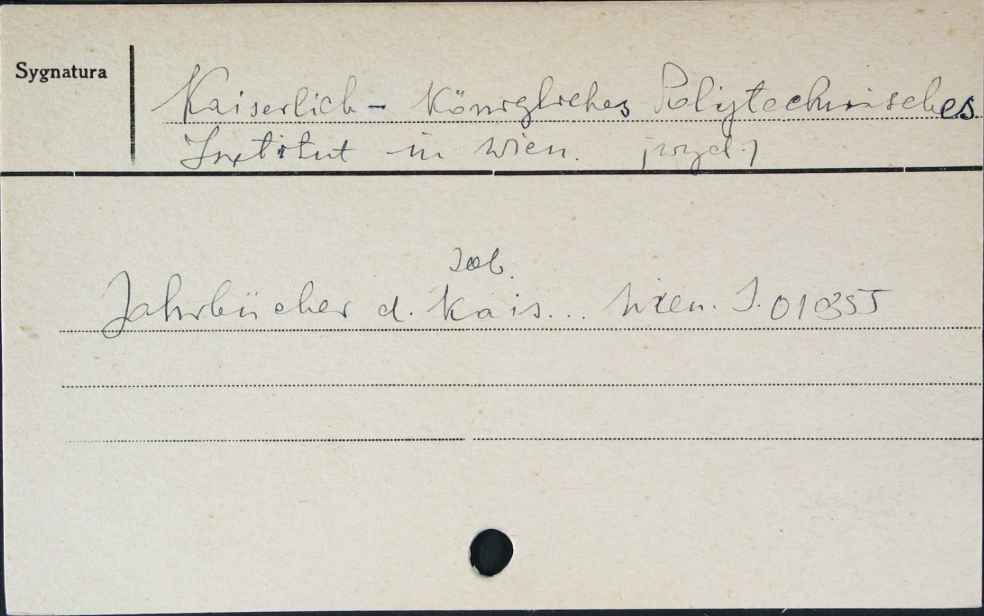 Sygnatura
Kaiserlich - Königliches Polytechnisches
Institut in Wien. (wyd.)
zob.
Jahrbücher d. Kais... Wien. S. 01855